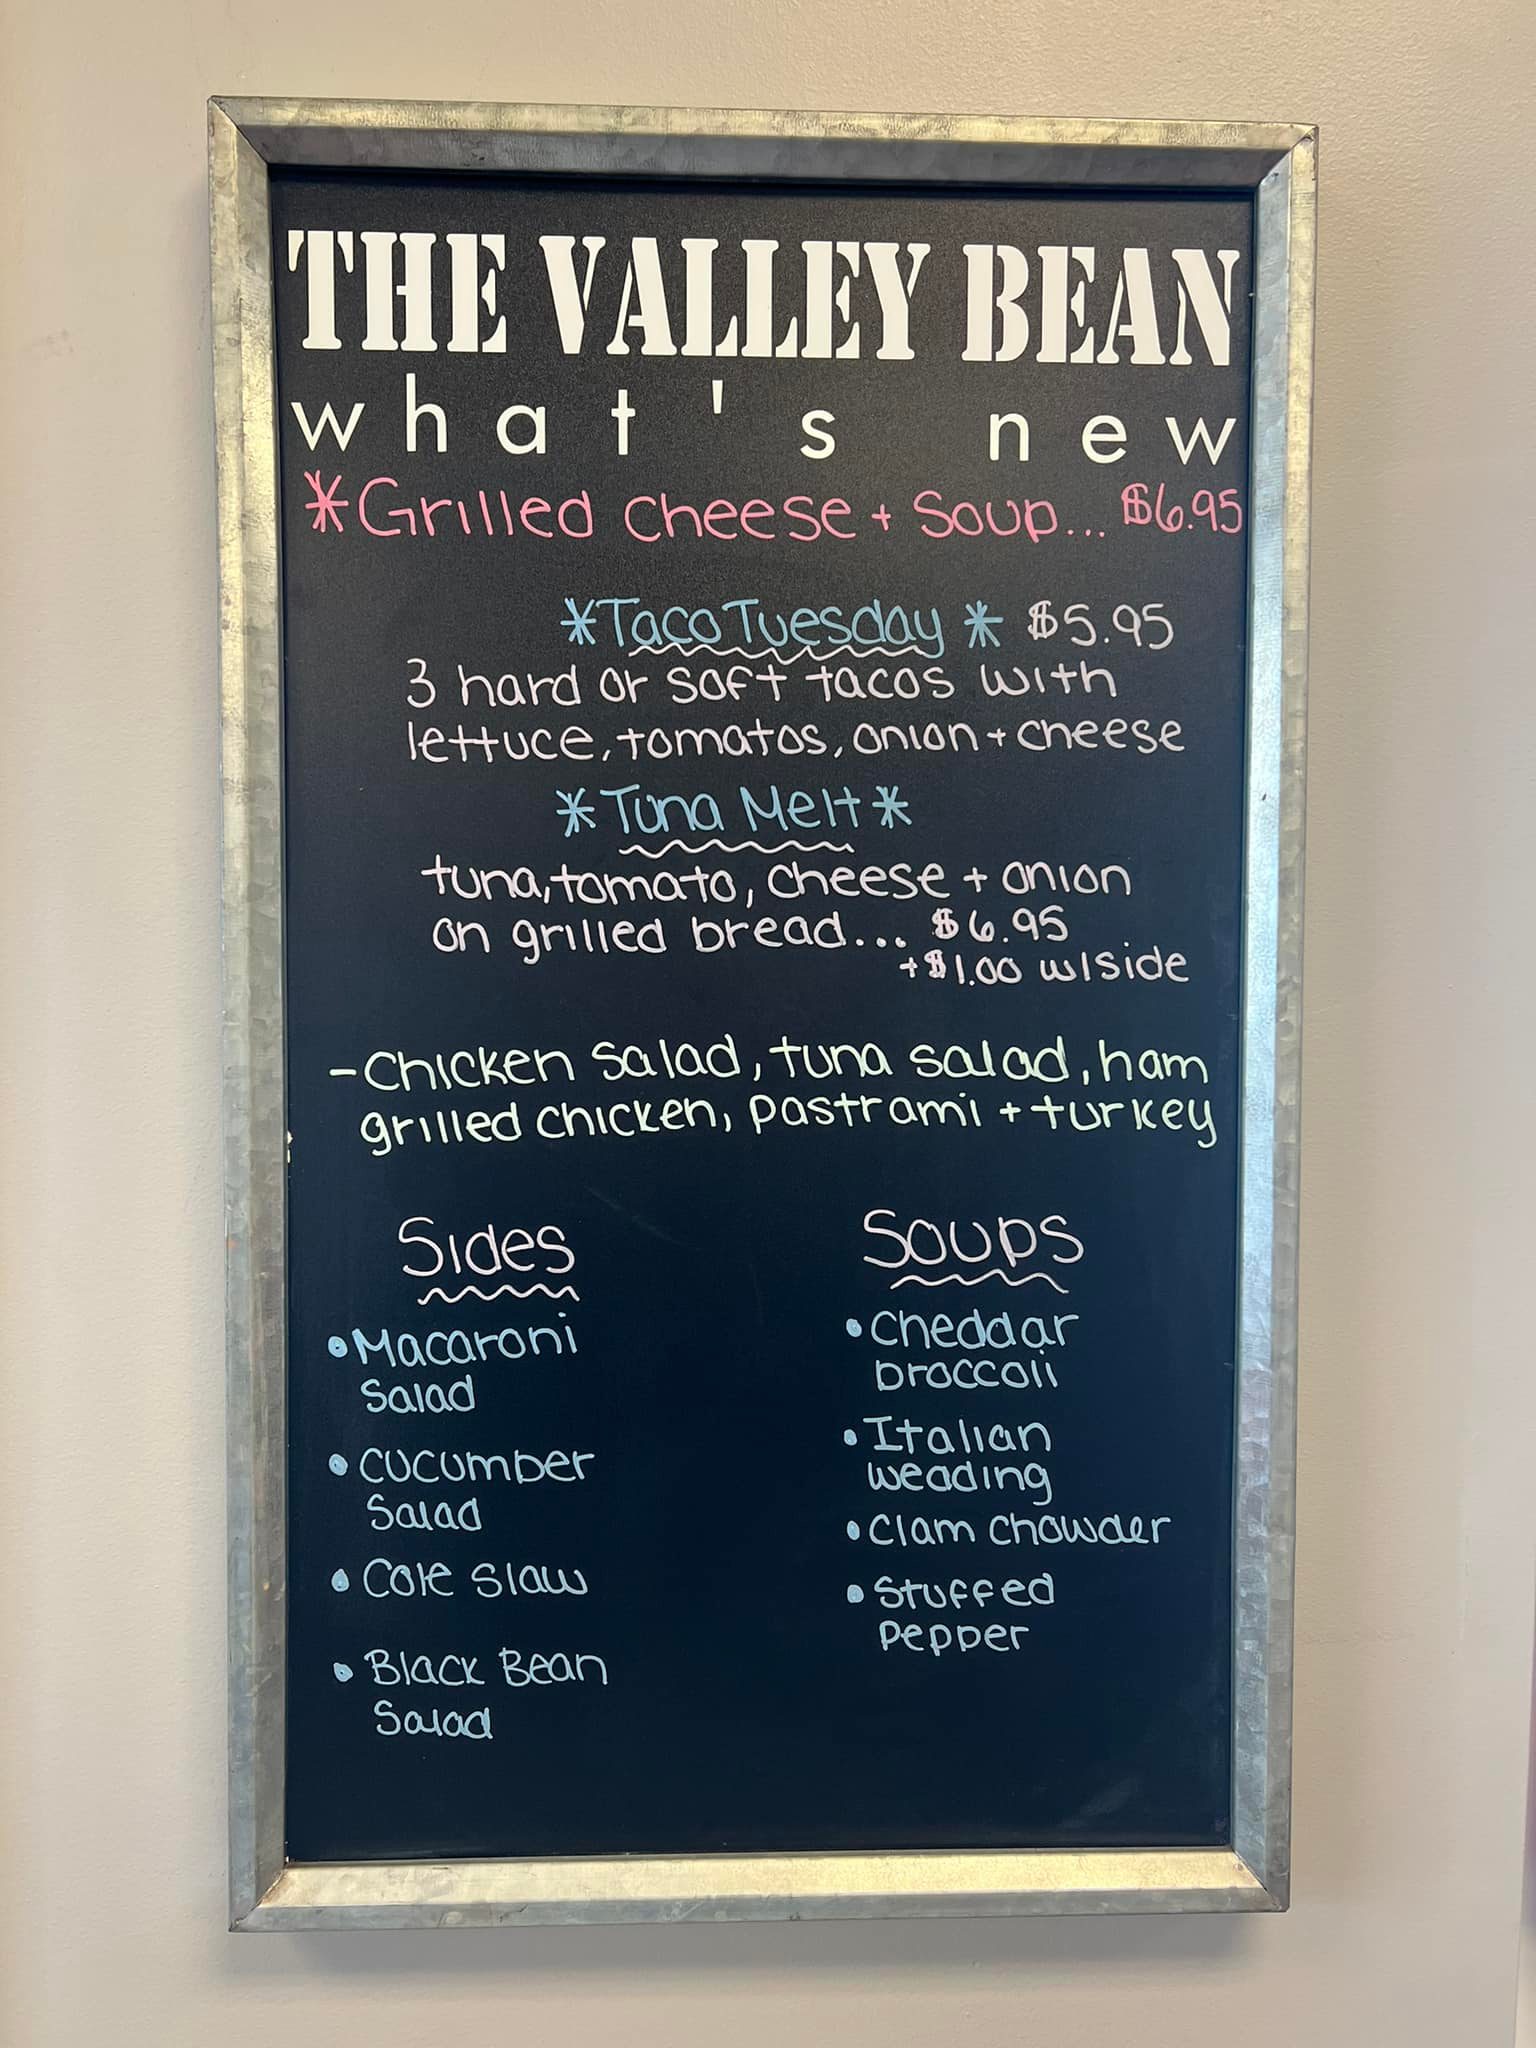 THE VALLEY BEAN
what's new
*Grilled cheese + Soup... $6.95
*Taco Tuesday* $5.95
3 hard or soft tacos with
lettuce, tomatos, onion + cheese
*Tuna Melt*
tuna, tomato, cheese + onion
on grilled bread... $6.95
+$1.00 w/side
-Chicken Salad, tuna salad, ham
grilled chicken, pastrami + turkey
Sides
•Macaroni
Salad
•Cucumber
Salad
•Cole slaw
•Black Bean
Salad
Soups
•Cheddar
broccoli
•Italian
weading
•Clam chowder
•Stuffed
Pepper